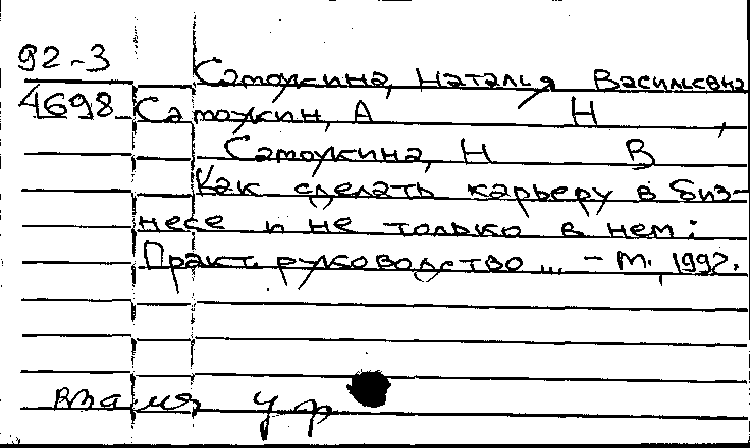 92-3
Самоукина, Наталья Васильевна
4698 Самоукин, А Н ,
Самоукина, Н В
Как сделать карьеру в биз-
несе и не только в нем:
Практ. руководство ... - М., 1992.